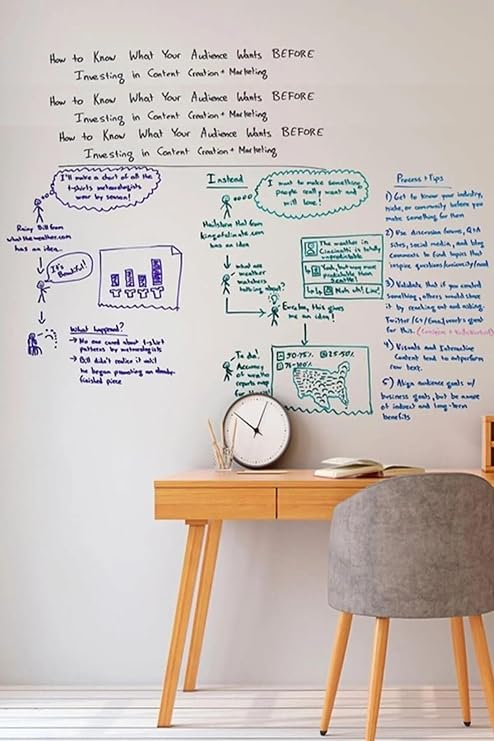 How to Know What Your Audience Wants BEFORE
Investing in Content Creation + Marketing
How to Know What Your Audience Wants BEFORE
Investing in Content Creation + Marketing
How to Know What Your Audience Wants BEFORE
Investing in Content Creation + Marketing
I'll make a chart of all the
t-shirts meteorologists
wear by season!
Rainy Bill from
whattheweather.com
has an idea.
It's
Beautiful!
What happened?
→ No one cared about t-shirt
patterns by meteorologists
→ Bill didn't realize it until
he began promoting an already-
finished piece
Instead
I want to make something
people really want and
will love!
Hailstein Hal from
kingofclimate.com
has an idea
What are
weather
watchers
talking about?
The weather in
Cincinnati is totally
unpredictable
Yeah, but way more
predictable than
Seattle!
Nuh uh! Liar!
Eureka, this gives
me an idea!
To do:
Accuracy
of weather
reports map
50-75%
25-50%
75-100%
Process + Tips
1) Get to know your industry,
niche, or community before you
make something for them
2) Use discussion forums, Q+A
sites, social media, and blog
comments to find topics that
inspire questions/curiosity/need
3) Validate that if you create
something, others would share
it by reaching out and asking.
Twitter/G+/Email/events great
for this.
4) Visuals and Interactive
Content tend to outperform
raw text.
5) Align audience goals w/
business goals, but be aware
of indirect and long-term
benefits